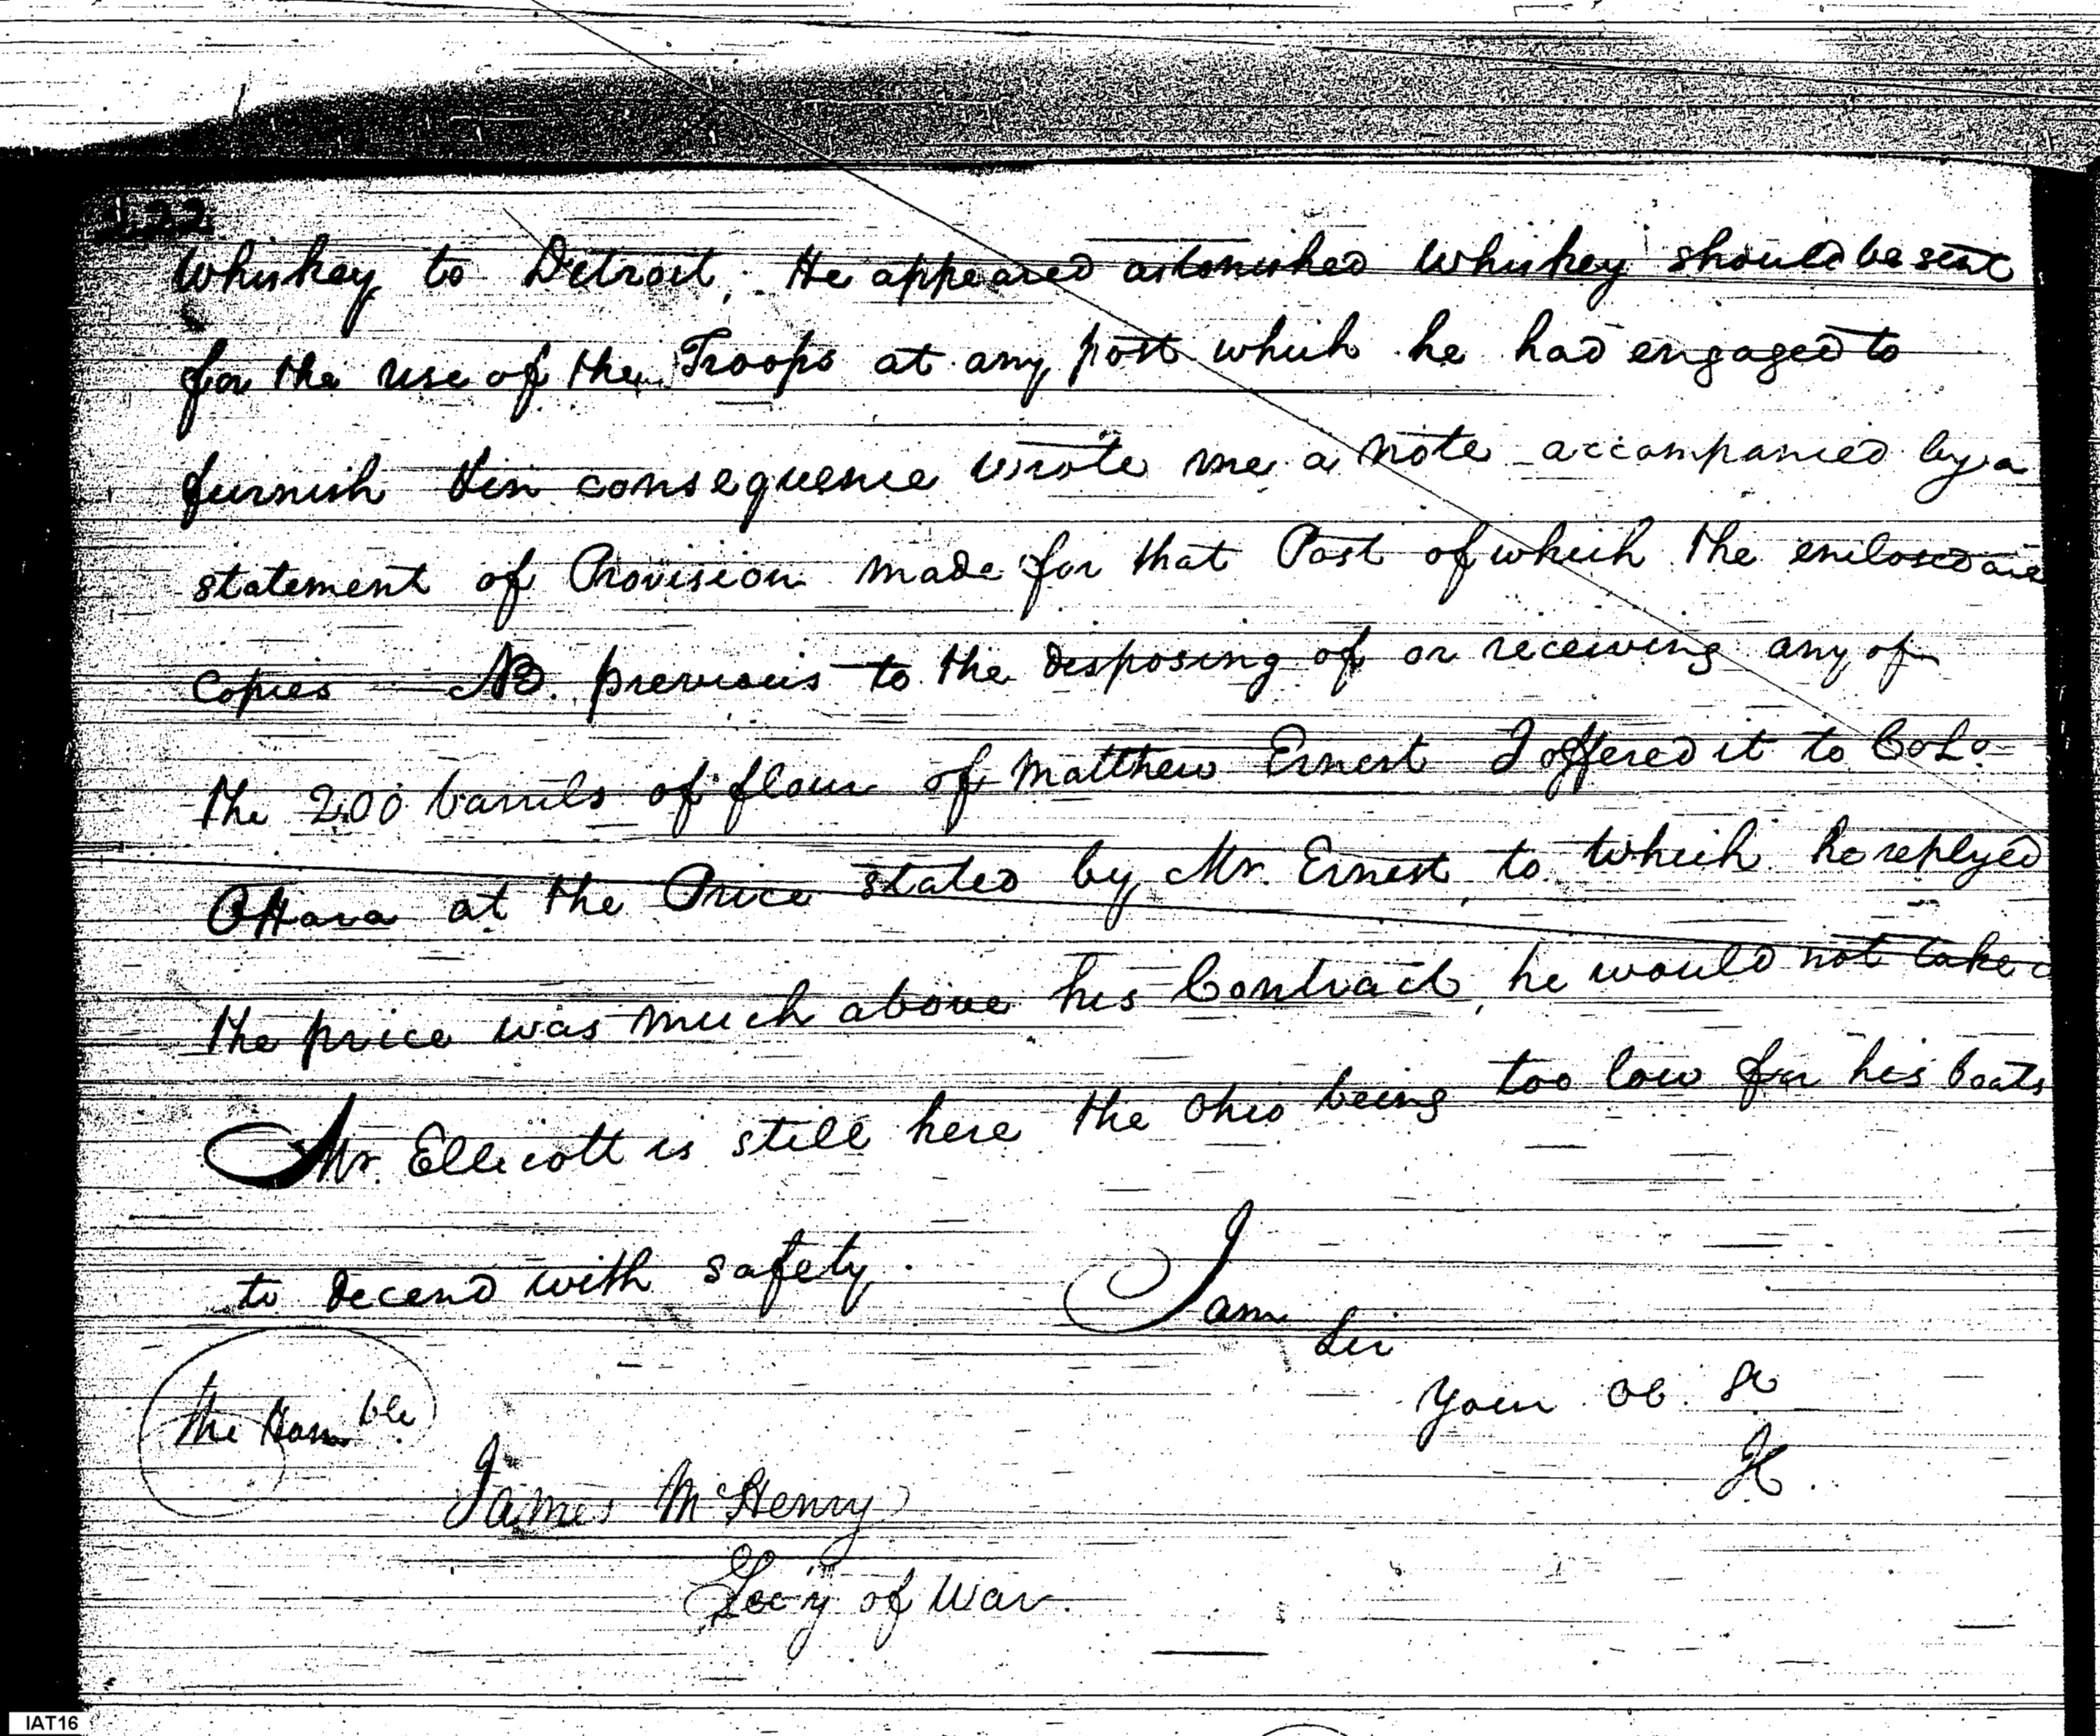 122
Whiskey to Detroit; He appeared astonished Whiskey should be sent
for the use of the Troops at any post which he had engaged to
furnish & in consequence wrote me a note accompanied by a
statement of Provision made for that Post of which the enclosed are
Copies — NB. previous to the disposing of or receiving any of
the 200 barrels of flour of Matthew Ernest I offered it to Colo
OHara at the Price stated by Mr. Ernest, to which he replyed
the price was much above his Contract, he would not take
Mr. Ellicott is still here the Ohio being too low for his boats
to decend with safety.
I am
Sir
Your Ob St
The Honble
James McHenry
Sec'y of War.
IAT16